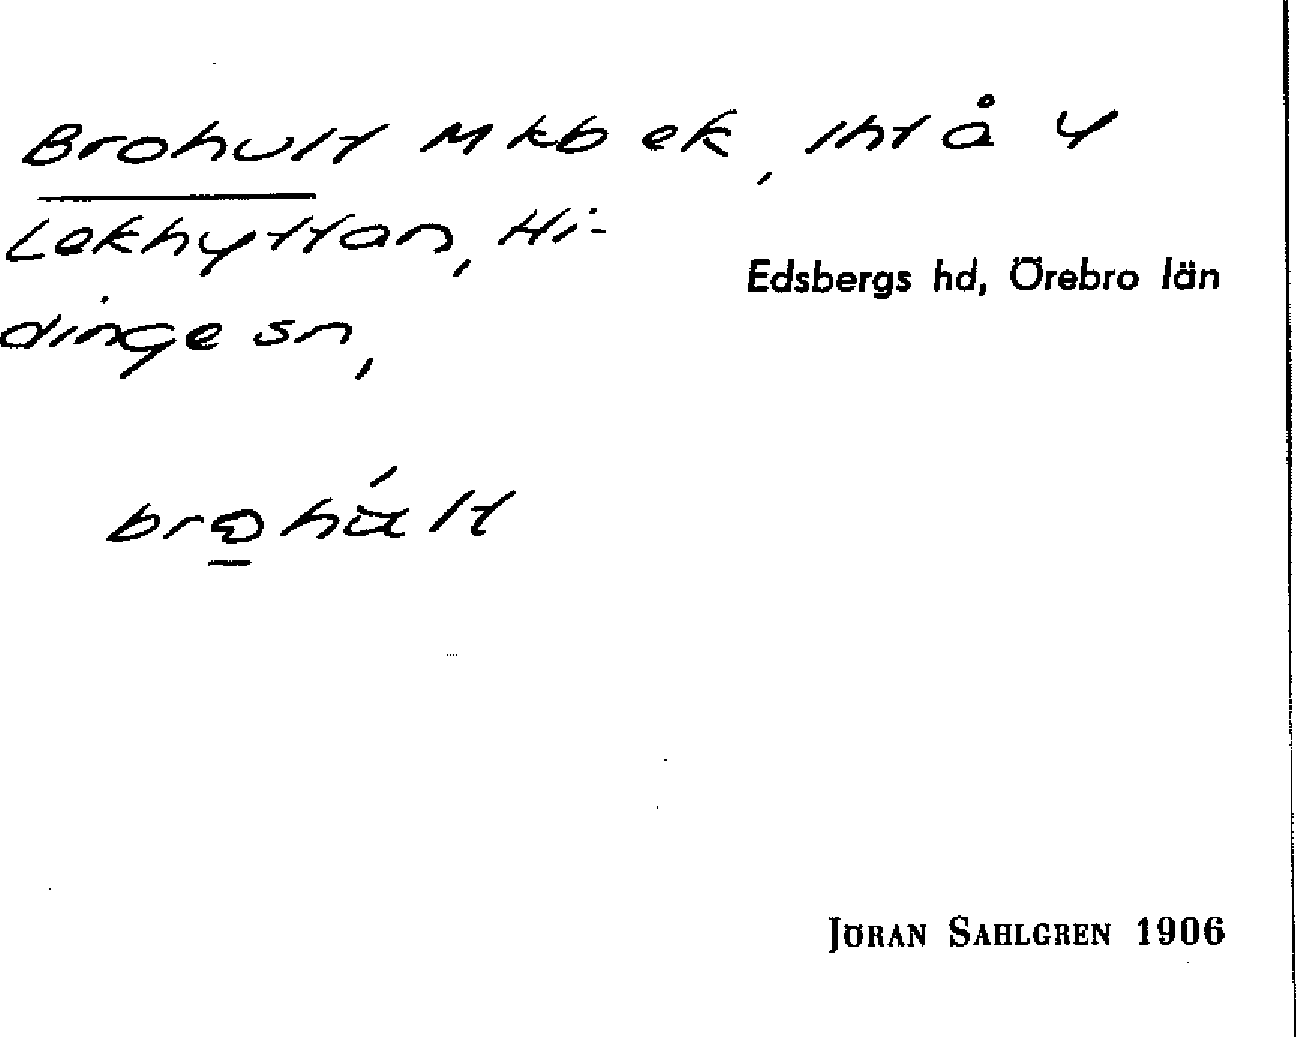 Brohult Mkb ek, lht å 4
Lekhyttan, Hi-
dinge sn,
Edsbergs hd, Örebro län
JÖRAN SAHLGREN 1906